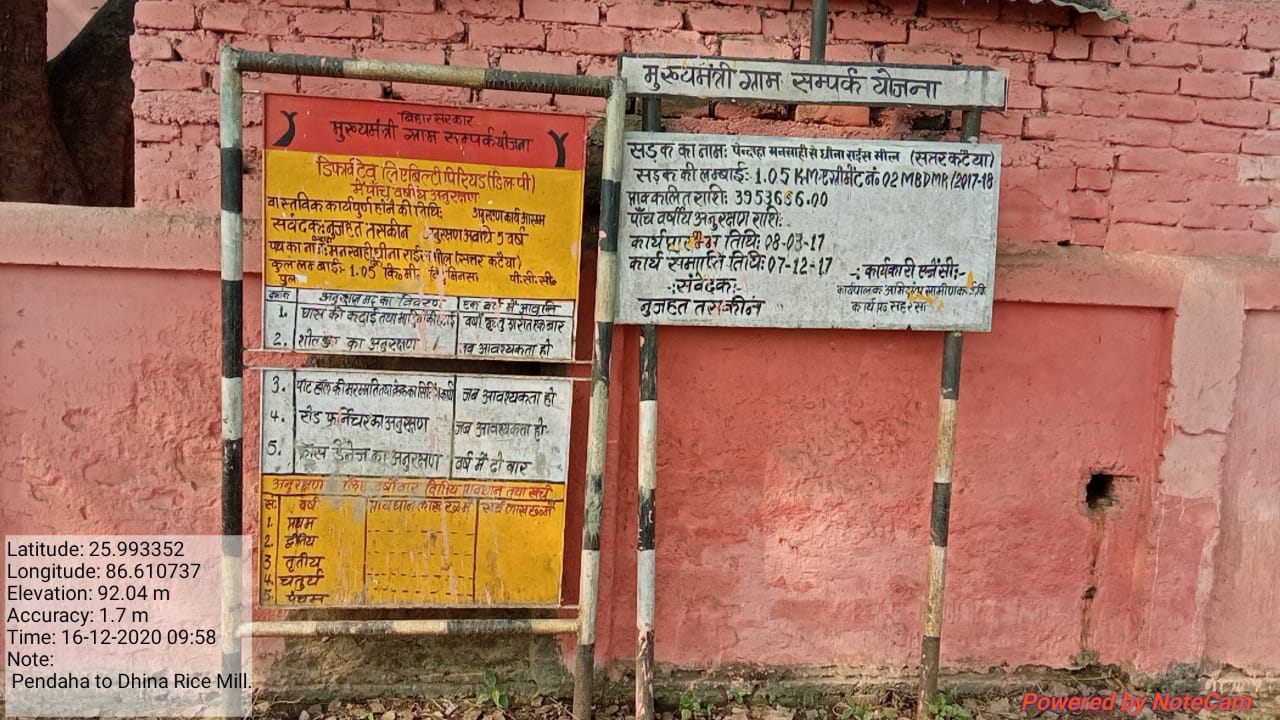 बिहार सरकार
मुख्यमंत्री ग्राम सम्पर्क योजना
डिफेक्टिव लिएबिल्टी पिरियड (डि.ल.पी)
में पाँच वर्षीय अनुरक्षण
वास्तविक कार्यपुर्ण होने की तिथि:
संवेदक: नुजहत तसकीन अनुरक्षण अवधि 5 वर्ष
पथ का नाम: मनसाही धीना राईस मील (सत्तर कटैया)
कुल लम्बाई:- 1.05 कि॰मी॰ पी.सी.सी॰
पुल
अनुरक्षण मद का विवरण एक वर्ष में आवृति
1. घास की कटाई
2. का अनुरक्षण जब आवश्यकता हो
3. जब आवश्यकता हो
4. रोड फर्निचर का अनुरक्षण जब आवश्यकता हो-
5. क्रॉस ड्रेनेज का अनुरक्षण वर्ष में दो बार
अनुरक्षण वित्तिय प्रावधान तथा खर्च
वर्ष
1. प्रथम
2. द्वीतिय
3 तृतीय
4. चतुर्थ
5. पंचम
मुख्यमंत्री ग्राम सम्पर्क योजना
सड़क का नाम: पेन्दाहा मनसाही से धीना राईस मील (सत्तर कटैया)
सड़क की लम्बाई:- 1.05 K.M. एग्रीमेंट नं० 02 MBDMR/2017-18
प्राक्कलित राशि: 3953656.00
पाँच वर्षीय अनुरक्षण राशि:-
कार्य प्रारम्भ तिथि: 08-03-17
कार्य समाप्ति तिथि: 07-12-17
-: कार्यकारी एजेंसी:-
-: संवेदक:-
कार्यपालक अभियंता ग्रामीण
नुजहत तसकीन
कार्य प्र० सहरसा
Latitude: 25.993352
Longitude: 86.610737
Elevation: 92.04 m
Accuracy: 1.7 m
Time: 16-12-2020 09:58
Note:
Pendaha to Dhina Rice Mill.
Powered by NoteCam